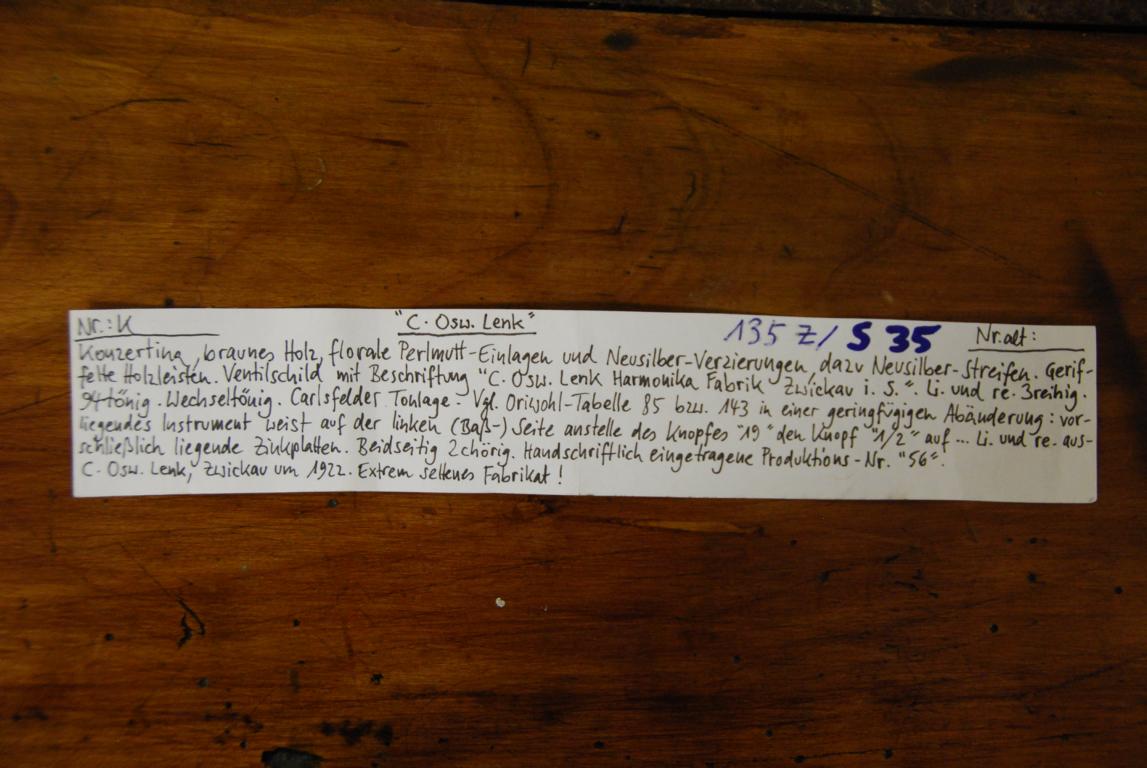 Nr.: K "C. Osw. Lenk" 135 Z/ S 35 Nr. alt:
Konzertina, braunes Holz, florale Perlmutt-Einlagen und Neusilber-Verzierungen, dazu Neusilber-Streifen. Gerif-
felte Holzleisten. Ventilschild mit Beschriftung "C. Osw. Lenk Harmonika Fabrik Zwickau i. S.". Li. und re. 3reihig.
94tönig. Wechseltönig. Carlsfelder Tonlage. Vgl. Oriwohl-Tabelle 85 bzw. 143 in einer geringfügigen Abänderung: vor-
liegendes Instrument weist auf der linken (Baß-) Seite anstelle des Knopfes "19" den Knopf "1/2" auf... Li. und re. aus-
schließlich liegende Zinkplatten. Beidseitig 2chörig. Handschriftlich eingetragene Produktions-Nr. "56".
C. Osw. Lenk, Zwickau um 1922. Extrem seltenes Fabrikat!